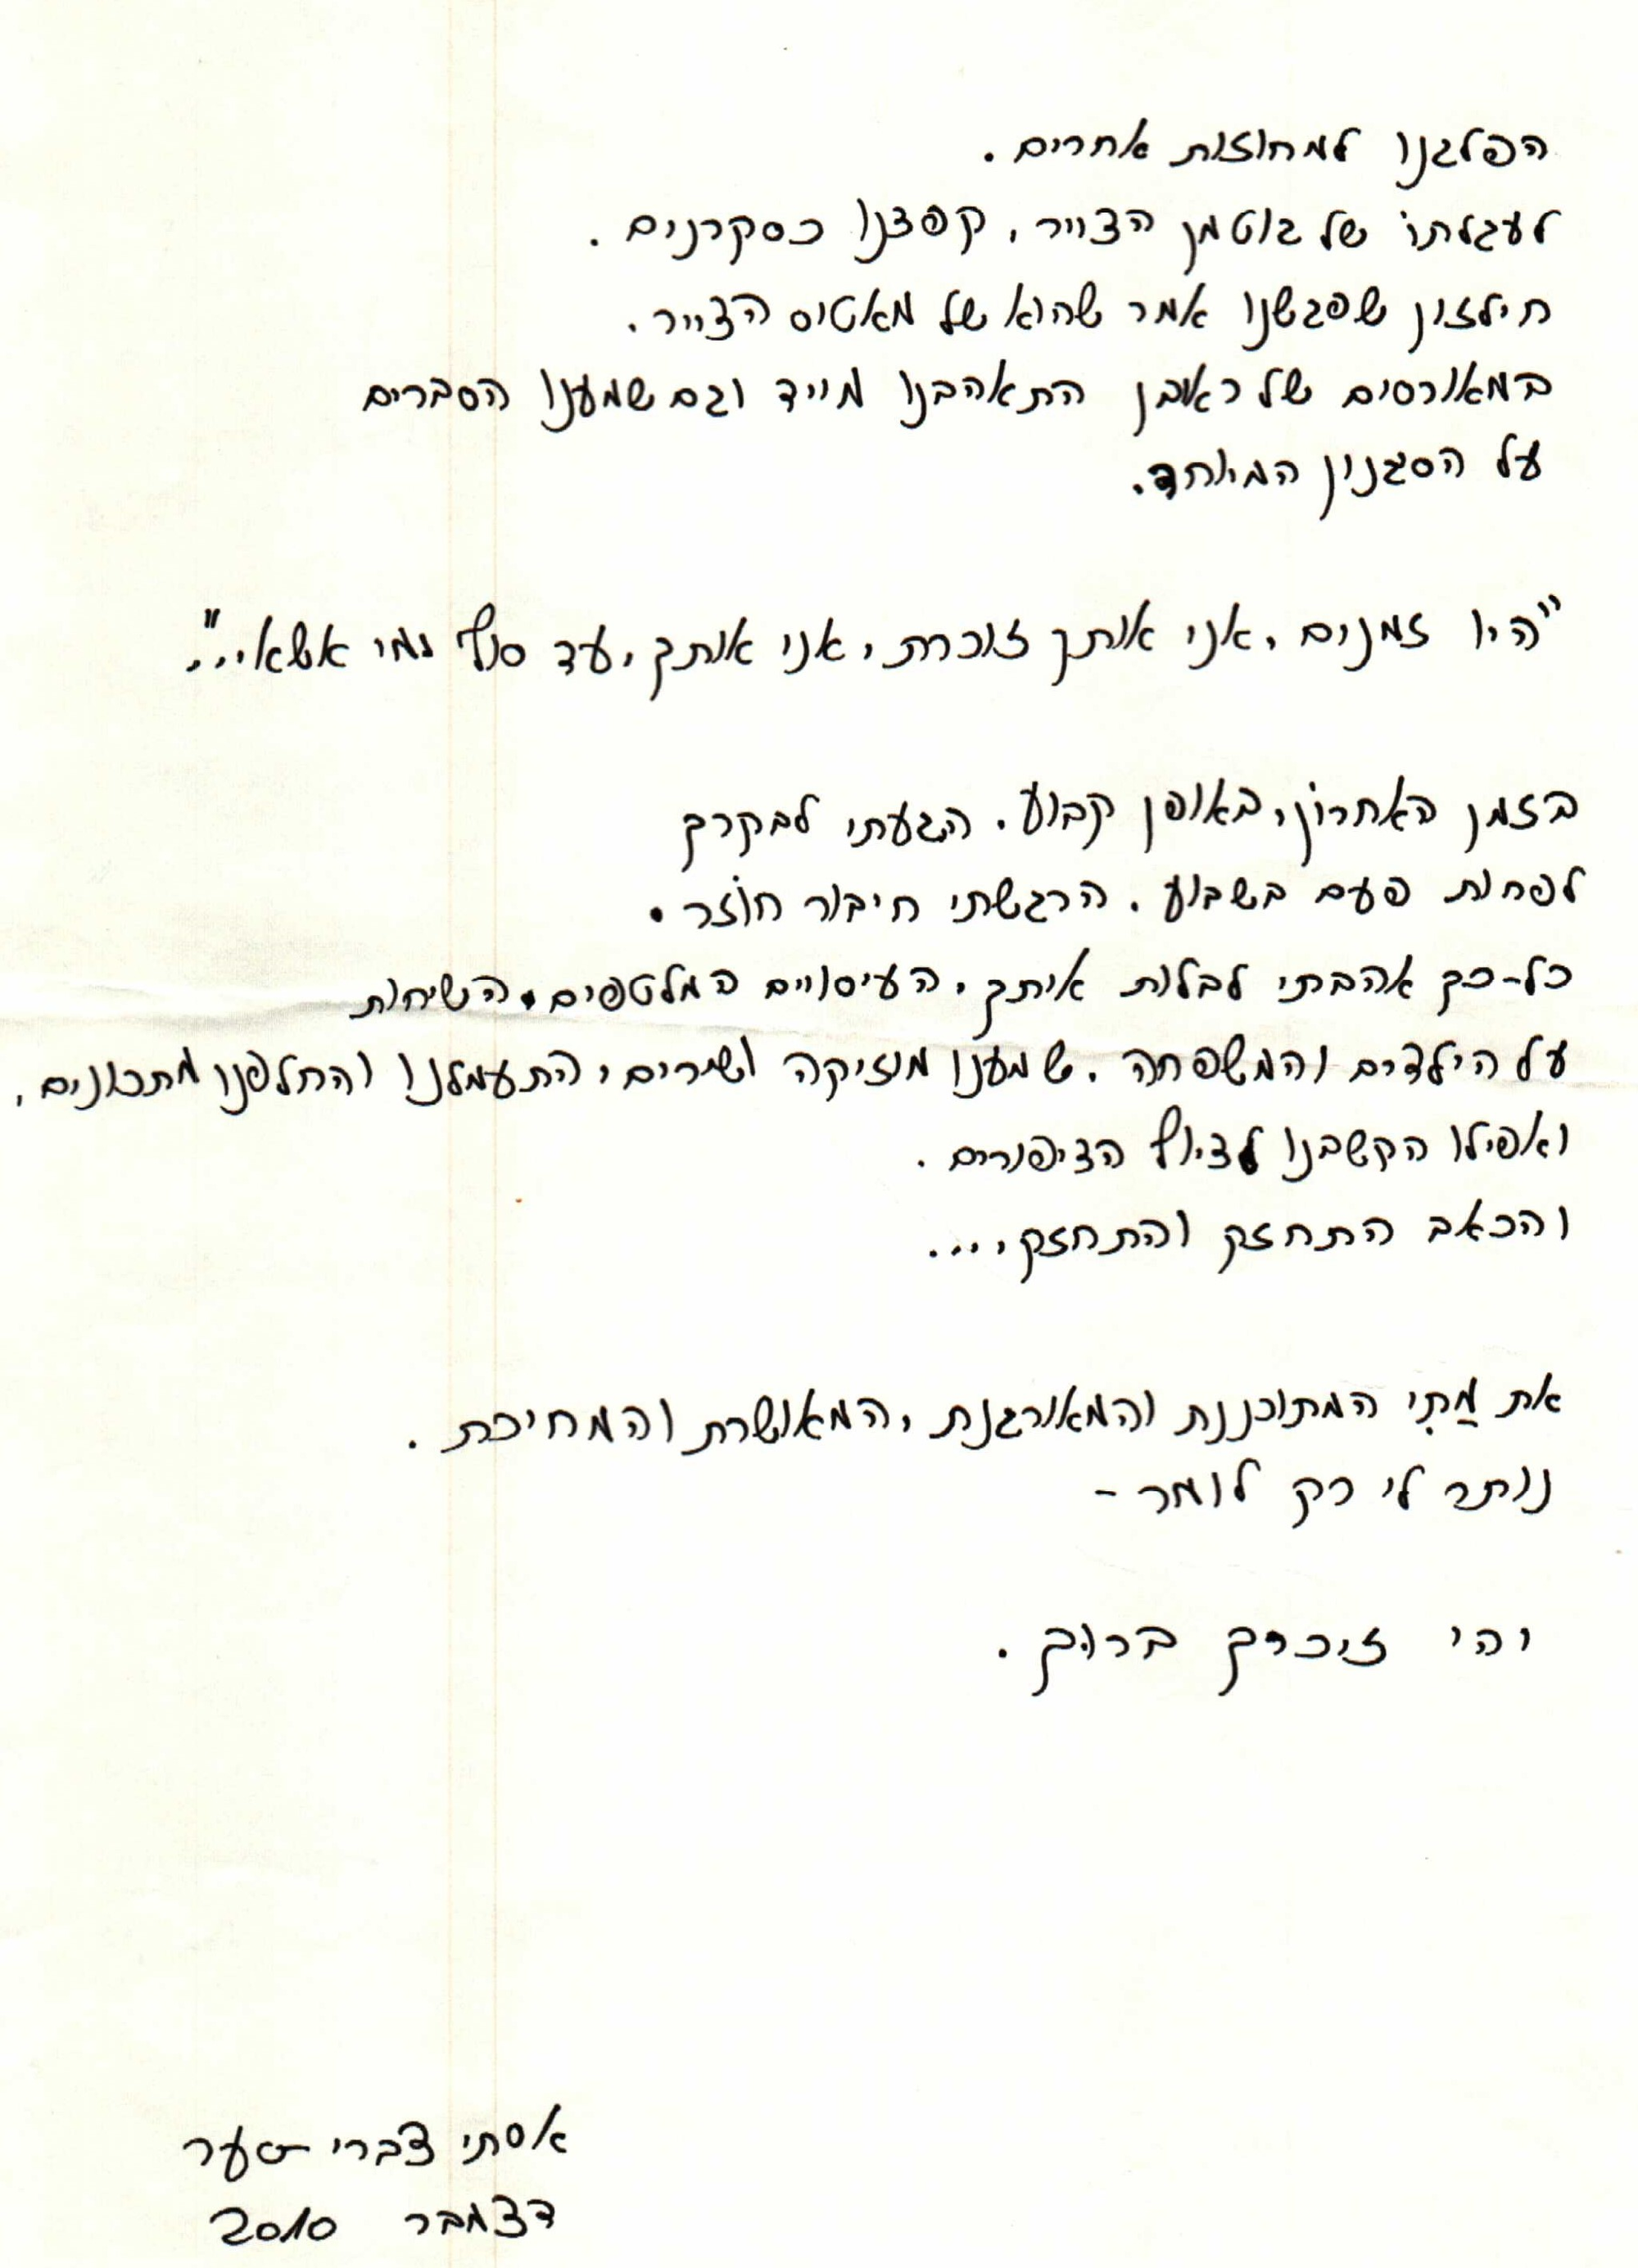 הפלגנו למחוזות אחרים.
לעגלתו של גוטמן הצייר, קפצנו כסקרנים.
חילזון שפגשנו אמר שהוא של מאטיס הצייר.
במאורסים של ראובן התאהבנו מייד וגם שמענו הסברים
על הסגנון המיוחד.
"היו זמנים, אני אותך זוכרת, אני אותך, עד סוף ימי אשא..."
בזמן האחרון, באופן קבוע. הגעתי לבקרך
לפחות פעם בשבוע. הרגשתי חיבור חוזר.
כל-כך אהבתי לבלות איתך, העיסויים המלטפים, השיחות
על הילדים והמשפחה. שמענו מוזיקה ושירים, התעמלנו והחלפנו מתכונים,
ואפילו הקשבנו לציוף הציפורים.
והכאב התחזק והתחזק,...
את מַתִי המתוכננת והמאורגנת, המאושרת והמחיכת.
נותר לי רק לומר -
יהי זיכרך ברוך.
אסתי צברי -סער
דצמבר 2010